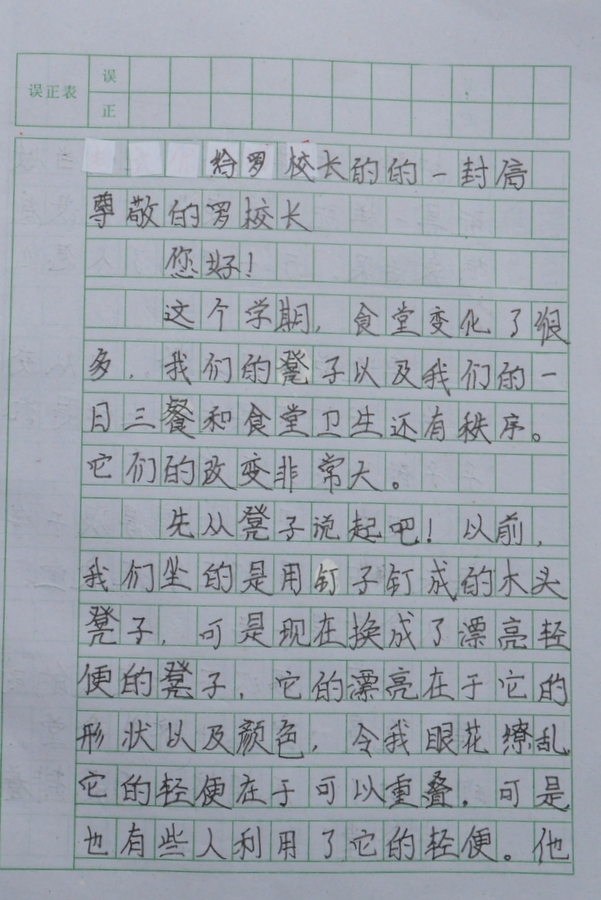 误正表 误
正
给罗校长的的一封信
尊敬的罗校长
您好！
这个学期，食堂变化了很
多，我们的凳子以及我们的一
日三餐和食堂卫生还有秩序。
它们的改变非常大。
先从凳子说起吧！以前，
我们坐的是用钉子钉成的木头
凳子，可是现在换成了漂亮轻
便的凳子，它的漂亮在于它的
形状以及颜色，令我眼花缭乱
它的轻便在于可以重叠，可是
也有些人利用了它的轻便。他